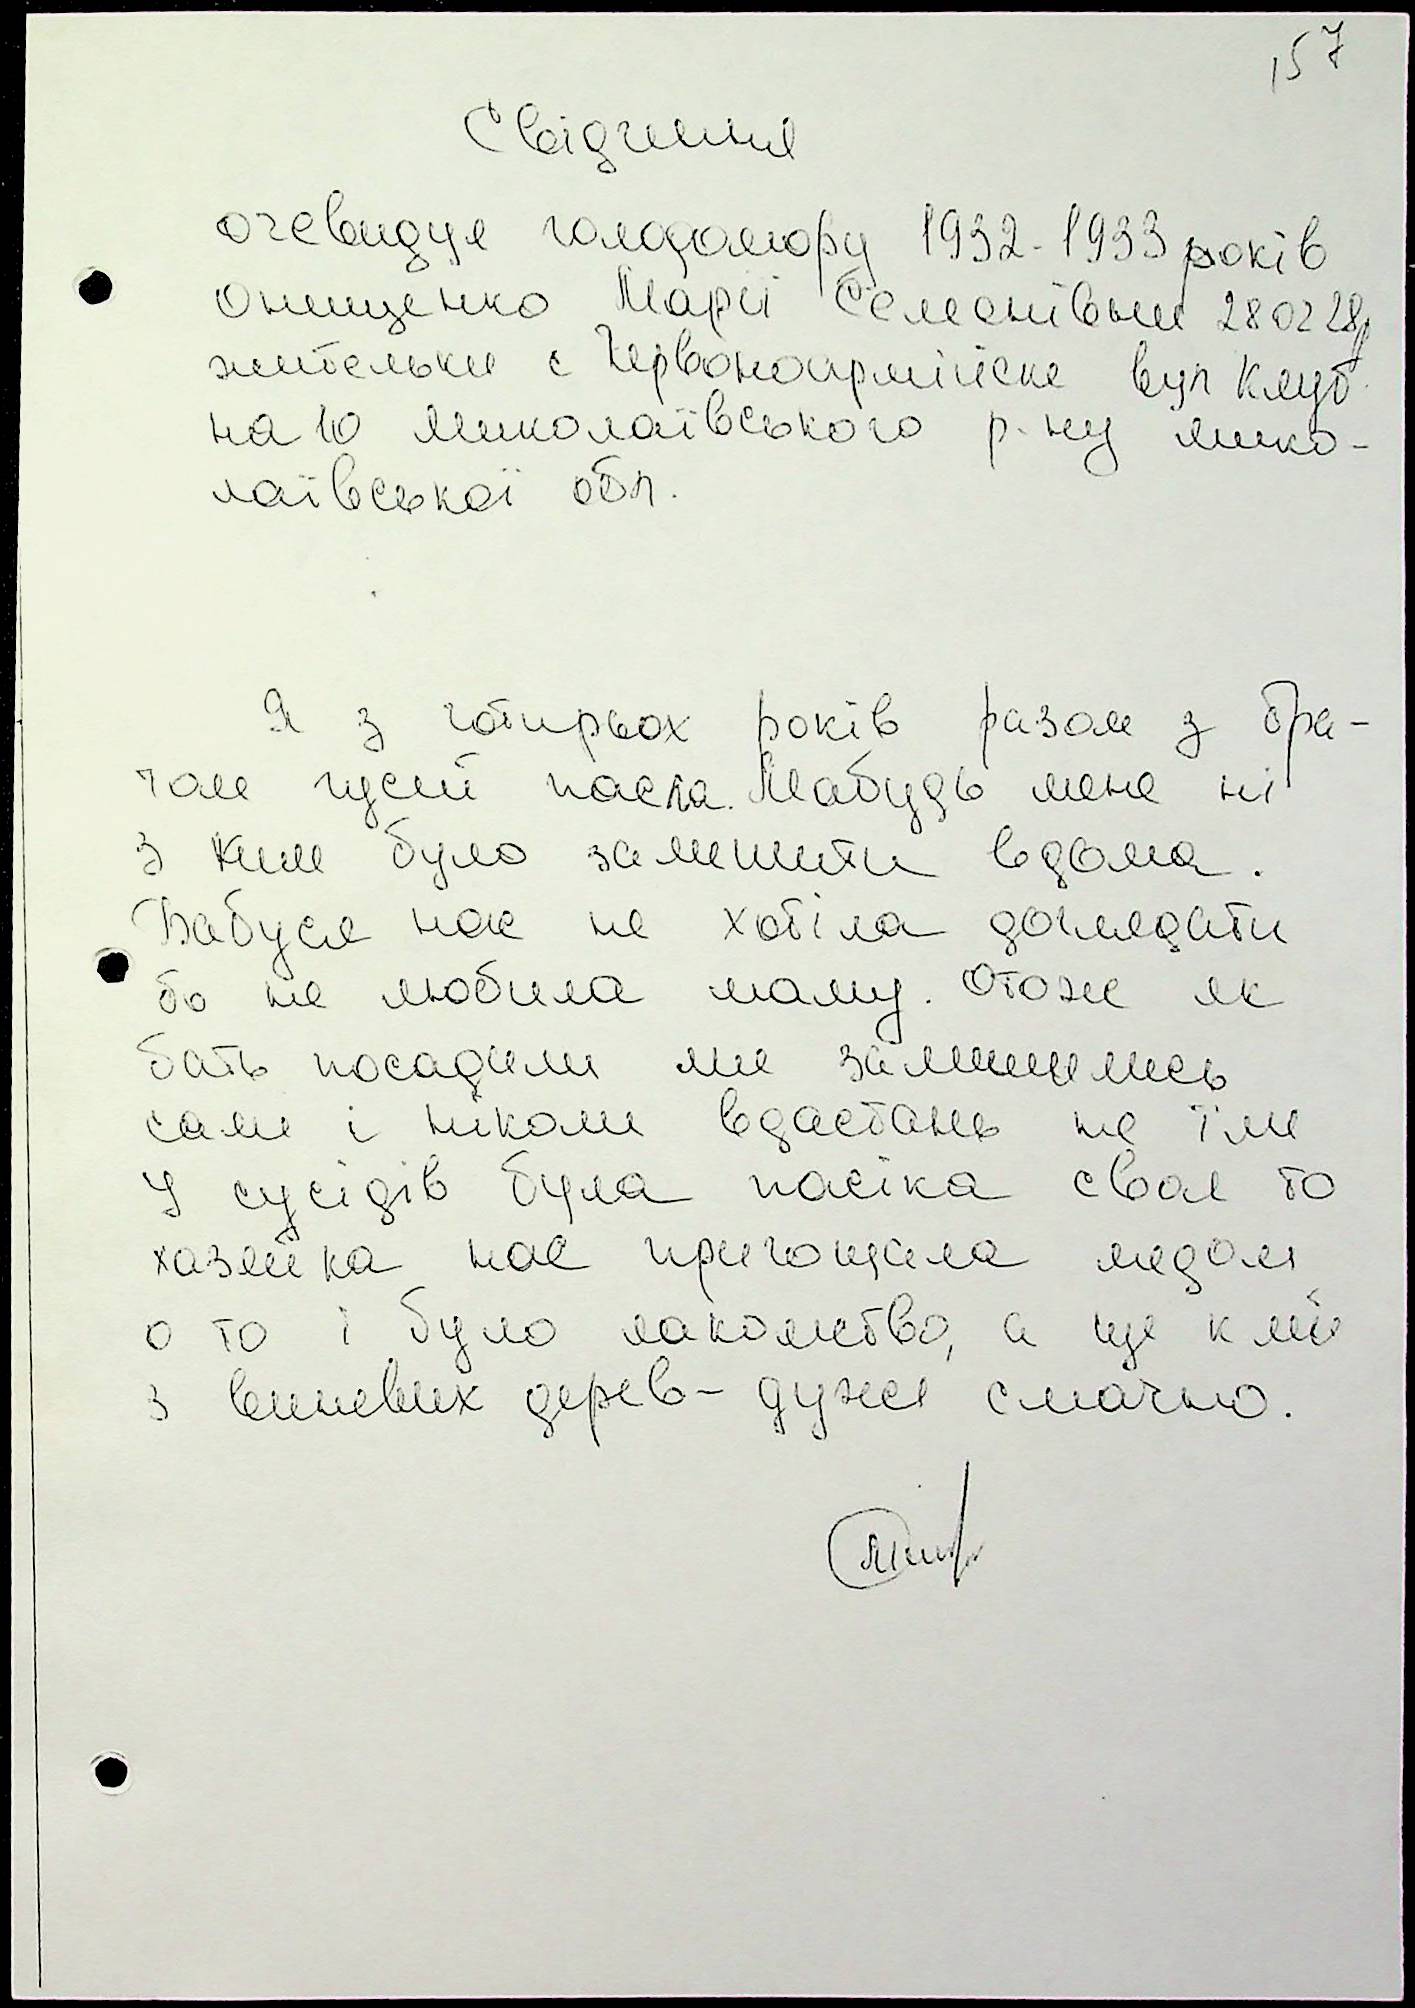 157
Свідчення
очевидця голодомору 1932-1933 років
Онищенко Марії Семенівни 28 02 28р
жительки с Червоноармійске вул Клуб
на 10 Миколаївського р-ну Мико-
лаївської обл.
Я з чотирьох років разом з бра-
том гусей пасла. Мабудь мене ні
з ким було залишити вдома.
Бабуся нас не хотіла доглядати
бо не любила маму. Отоже як
бать посадили ми залишились
сами і ніколи вдасталь не їли
У сусідів була пасіка своя то
хазяйка нас пригощала медом
о то і було лакомство, а ще клей
з вишевих дерев - дуже смачно.